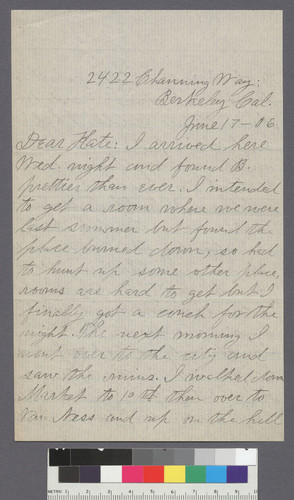 2422 Channing Way:
Berkeley Cal.
June 17-06
Dear Kate: I arrived here
Wed. night and found B.
prettier than ever. I intended
to get a room where we were
last summer but found the
place burned down, so had
to hunt up some other place,
rooms are hard to get but I
finally got a couch for the
night. The next morning I
went over to the city and
saw the ruins. I walked down
Market to 10th then over to
Van Ness and up on the hill
METRIC 1 2 3 4 5 6 7 8 9 10 11 12 13 14 15